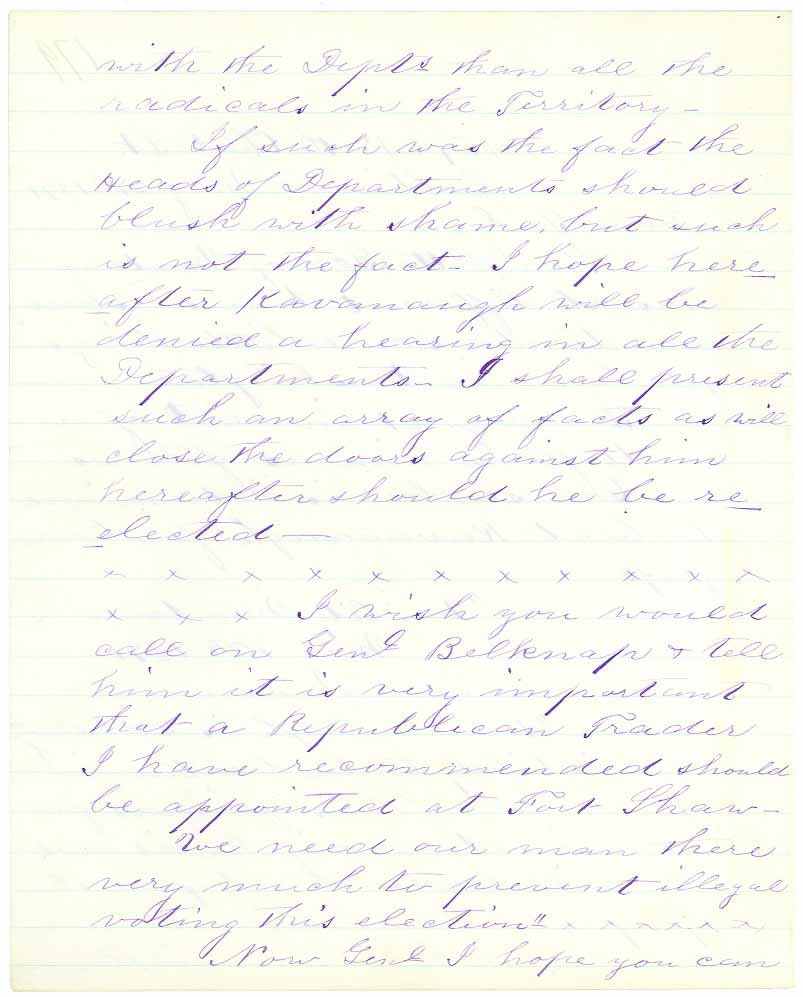 with the Depts than all the
radicals in the Territory-
If such was the fact the
Heads of Departments should
blush with shame, but such
is not the fact- I hope here
after Kavanaugh will be
denied a hearing in all the
Departments- I shall present
such an array of facts as will
close the doors against him
hereafter should he be re
elected —
x x x x x x x x x x x
x x x I wish you would
call on Genl Belknap & tell
him it is very important
that a Republican Trader
I have recommended should
be appointed at Fort Shaw-
We need our man there
very much to prevent illegal
voting this election" x x x x x x
Now Genl I hope you can